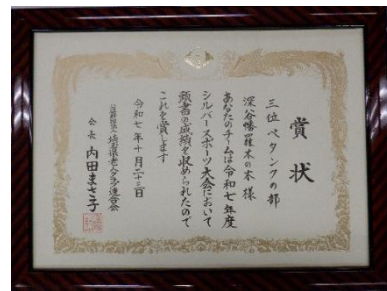 賞状
三位 ペタンクの部
深谷勝羅木の木 様
あなたのチームは令和七年度
シルバースポーツ大会において
頭書の成績を収められたので
これを賞します
令和七年十月二十三日
埼玉県老人クラブ連合会
会長 内田まさ子